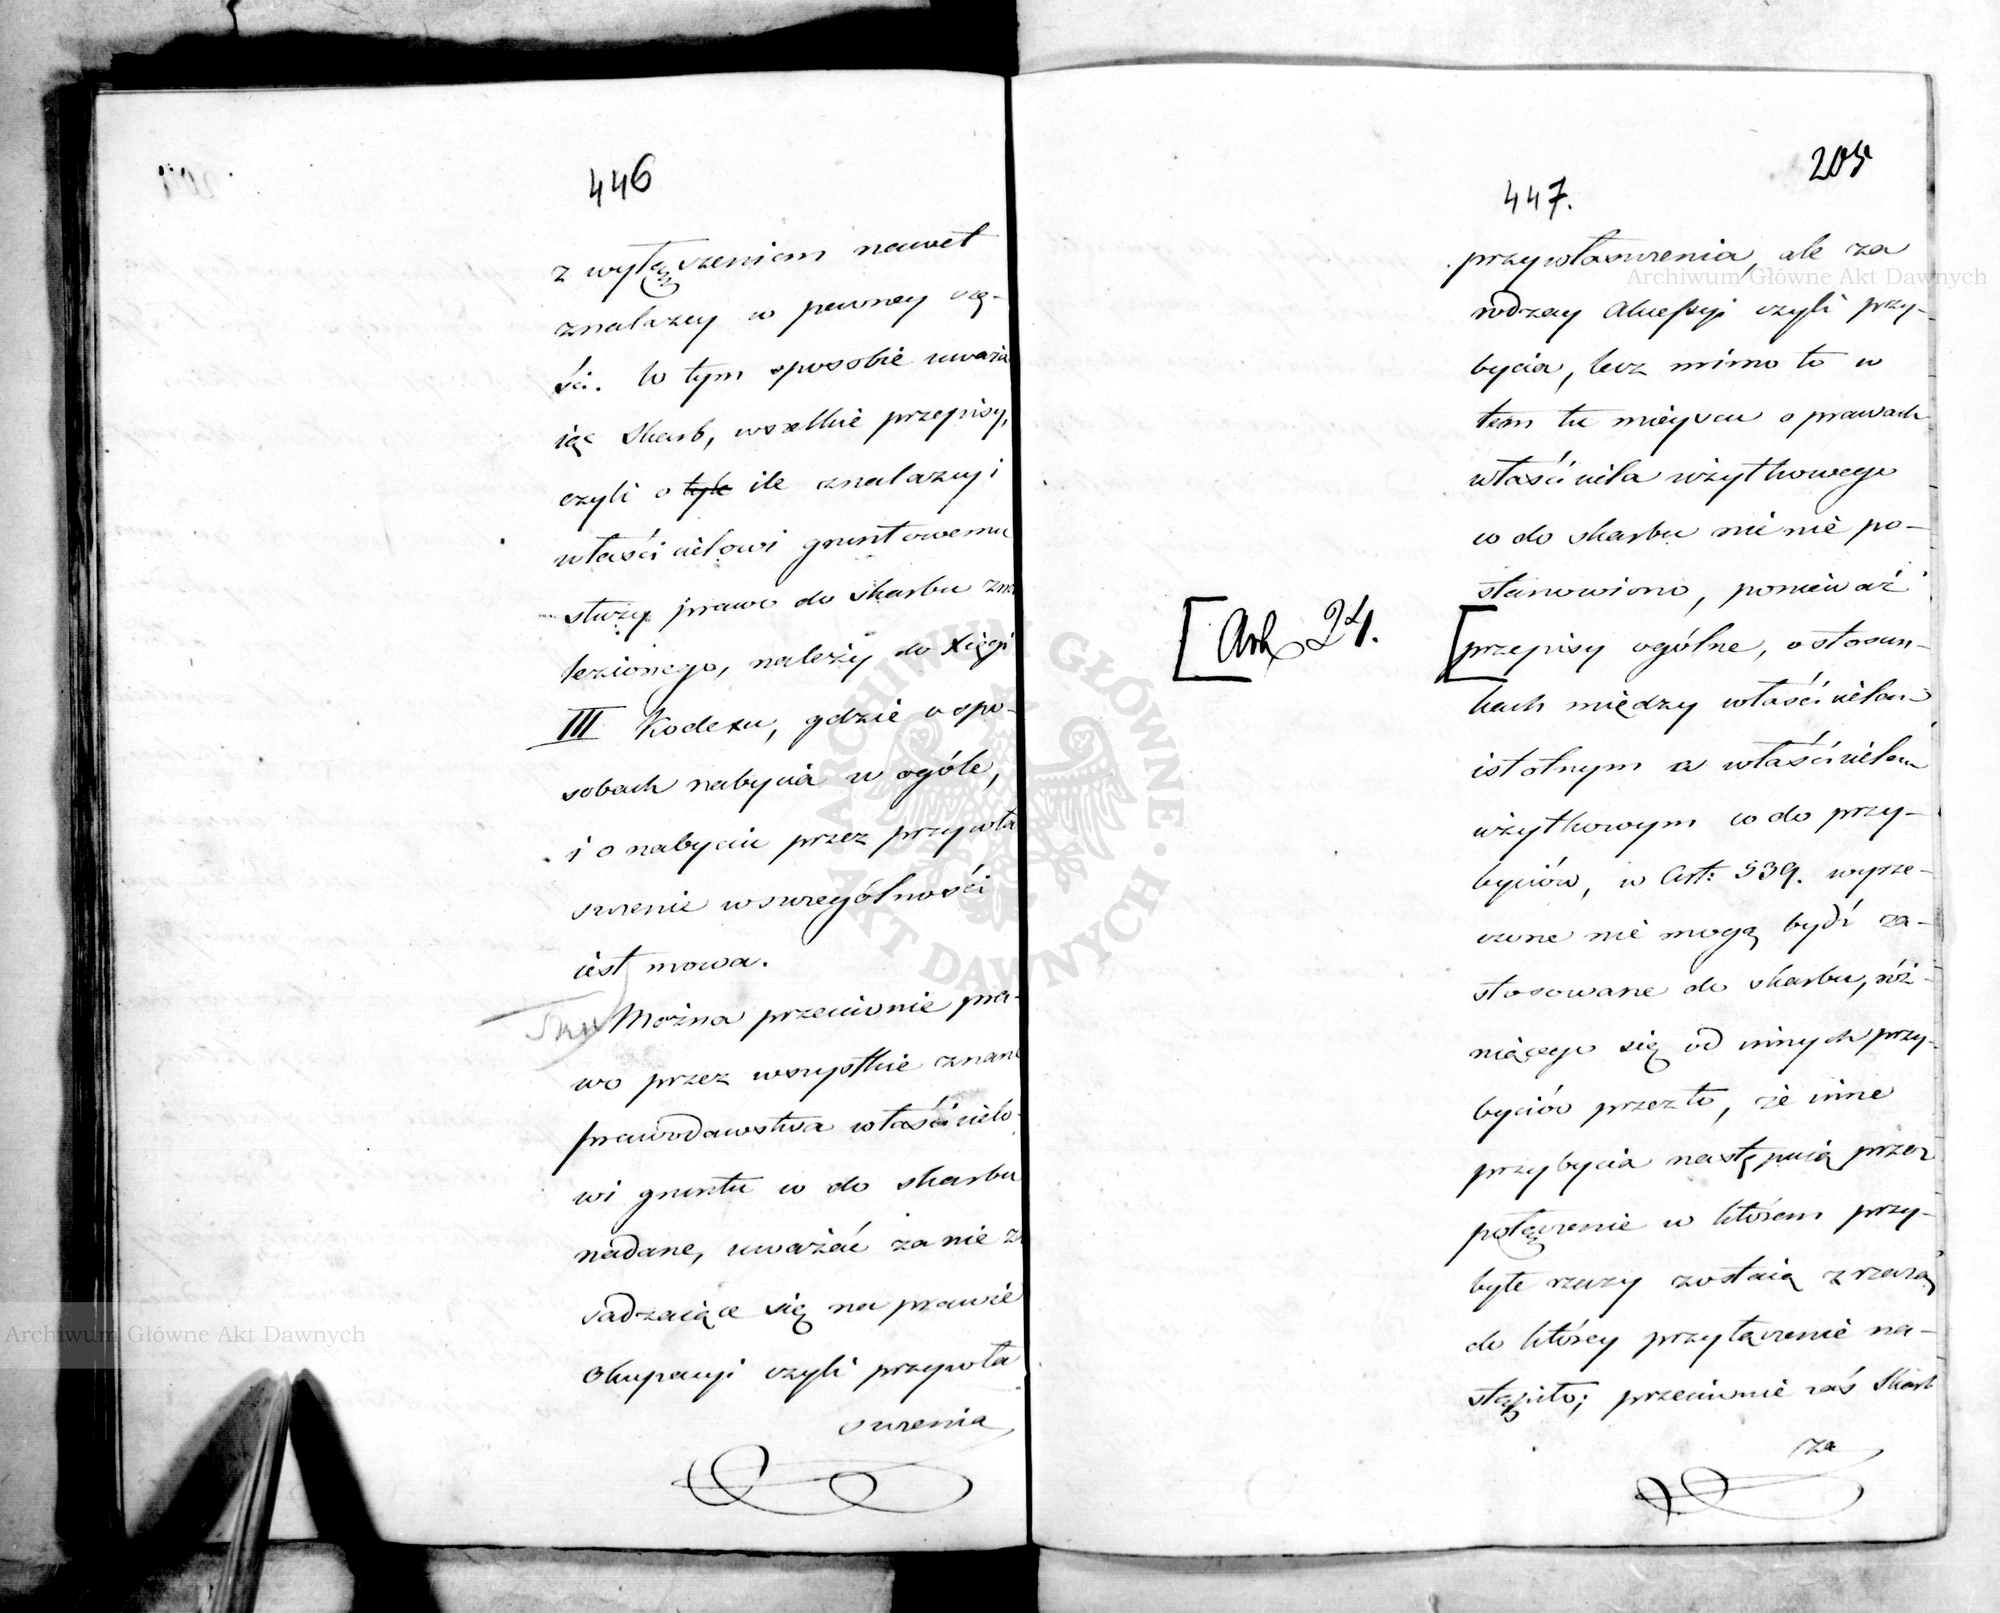 446
z wyłączeniem nawet
znalazcy w pewney czę-
ści. W tym sposobie uważa
iąc Skarb, wszelkie przepisy,
czyli o tyle ile znalazcy i
właścicielowi gruntowemu
służy prawo do skarbu zna
lezionego, należy do Xięgi
III Kodexu, gdzie o spo-
sobach nabycia w ogóle,
i o nabyciu przez przywła
szczenie w szczególności
iest mowa.
Można przeciwnie pra-
wo przez wszystkie znane
prawodawstwa właścicielo-
wi gruntu co do skarbu
nadane, uważać za nie za
sadzaiące się na prawie
Okupacyi czyli przywła
szczenia
205
447.
przywłaszczenia, ale za
rodzay Akcessyi czyli przy-
bycia, lecz mimo to w
tem tu mieyscu o prawach
właściciela użytkowego
co do skarbu nic nie po-
stanowiono, ponieważ
[Art. 24.
[przepisy ogólne, o stosun-
kach między właścicielem
istotnym a właścicielem
użytkowym co do przy-
byciów, w Art: 539. wyrze-
czone nie mogą bydź za-
stosowane do skarbu, róż-
niącego się od innych przy-
byciów przez to, że inne
przybycia następuią przez
połączenie w którem przy-
byłe rzeczy zostaią z rzeczą
do którey przyłączenie na-
stąpiło; przeciwnie zaś Skarb
za
Archiwum Główne Akt Dawnych
Archiwum Główne Akt Dawnych
ARCHIWUM GŁÓWNE · AKT DAWNYCH ·